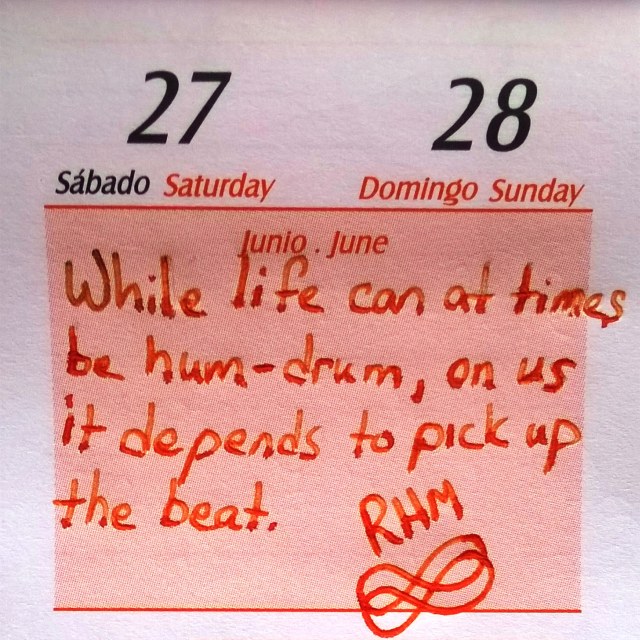 27 28
Sábado Saturday Domingo Sunday
Junio . June
While life can at times
be hum-drum, on us
it depends to pick up
the beat.
RHM